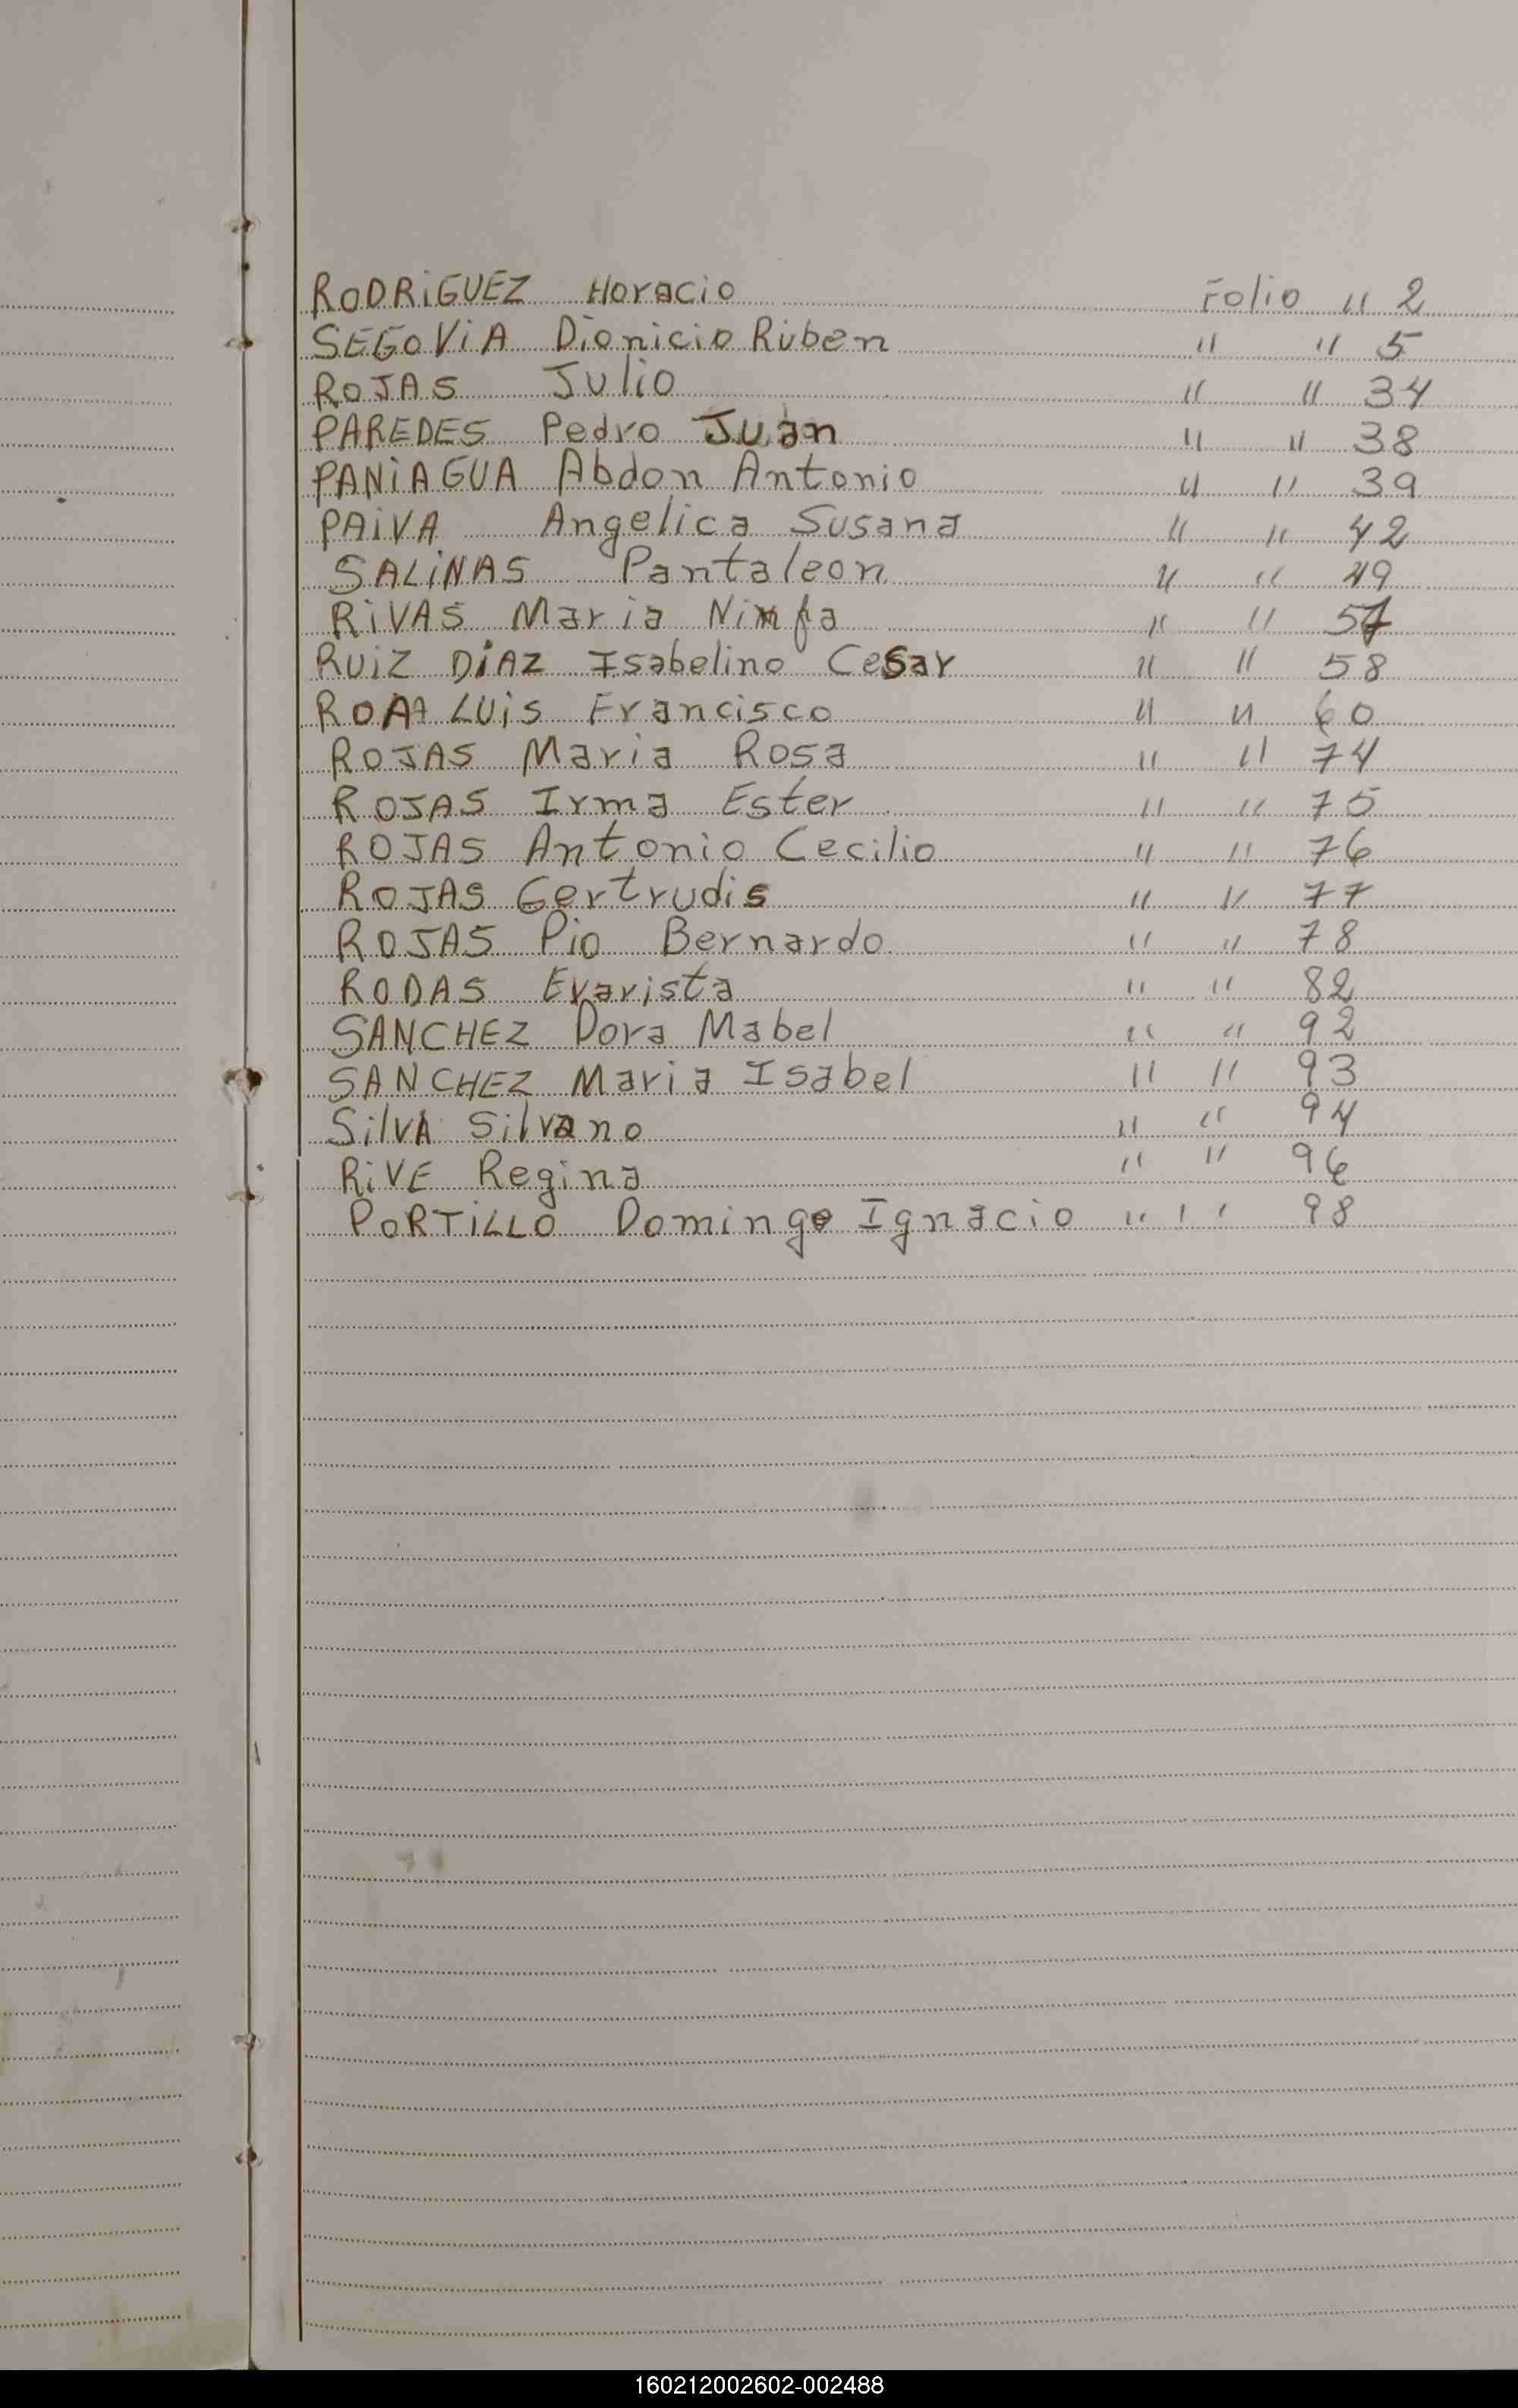 RODRiGUEZ Horacio Folio " 2
SEGOViA Dionicio Ruben " " 5
ROJAS Julio " " 34
PAREDES Pedro Juan " " 38
PANiAGUA Abdon Antonio " " 39
PAiVA Angelica Susana " " 42
SALiNAS Pantaleon " " 49
RiVAS Maria Ninfa " " 57
RUiZ DiAZ Isabelino Cesar " " 58
ROA LUis Francisco " " 60
ROJAS Maria Rosa " " 74
ROJAS Irma Ester " " 75
ROJAS Antonio Cecilio " " 76
ROJAS Gertrudis " " 77
ROJAS Pio Bernardo " " 78
RODAS Evarista " " 82
SANCHEZ Dora Mabel " " 92
SANCHEZ Maria Isabel " " 93
SilVA Silvano " " 94
RiVE Regina " " 96
PORTiLLO Domingo Ignacio " " 98
160212002602-002488